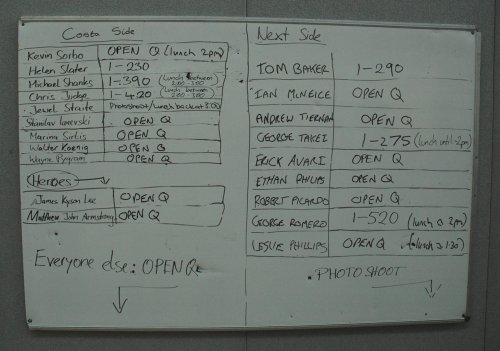 Costa Side
Kevin Sorbo OPEN Q (lunch 2pm)
Helen Slater 1-230
Michael Shanks 1-390 (Lunch between 2:00-3:00)
Chris Judge 1-420 (lunch between 2:00-3:00)
Jewel Staite Photoshoot/lunch back at 3:00
Stanislav Ianevski OPEN Q
Marina Sirtis OPEN Q
Walter Koenig OPEN Q
Wayne Pygram OPEN Q
Heroes
James Kyson Lee OPEN Q
Matthew John Armstrong OPEN Q
Everyone else: OPEN Q
Next Side
TOM BAKER 1-290
IAN McNEICE OPEN Q
ANDREW TIERNAN OPEN Q
GEORGE TAKEI 1-275 (lunch until 2pm)
ERICK AVARI OPEN Q
ETHAN PHILIPS OPEN Q
ROBERT PICARDO OPEN Q
GEORGE ROMERO 1-520 (lunch @ 2pm)
LESLIE PHILLIPS OPEN Q (lunch @ 1:30)
PHOTOSHOOT